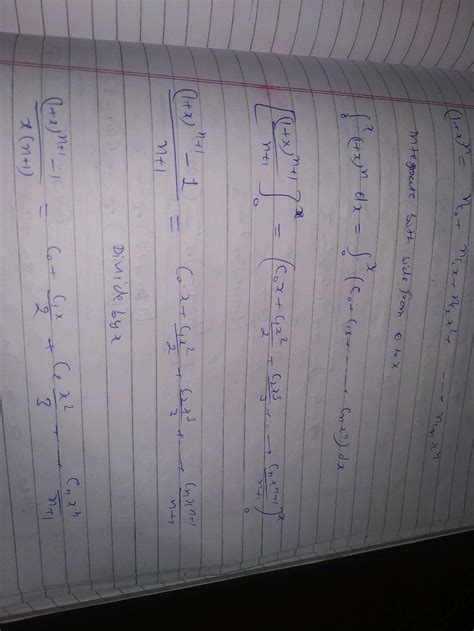 (1+x)ⁿ = ⁿC₀ + ⁿC₁x + ⁿC₂x² - ... - ⁿCₙxⁿ
Integrate both side from 0 to x
∫₀ˣ (1+x)ⁿ dx = ∫₀ˣ (C₀ + C₁x + ...... Cₙxⁿ) dx
[(1+x)ⁿ⁺¹/n+1]₀ˣ = (C₀x + C₁x²/2 + C₂x³/3 + ... + Cₙxⁿ⁺¹/n+1)₀ˣ
(1+x)ⁿ⁺¹ - 1/n+1 = C₀x + C₁x²/2 + C₂x³/3 + .. + Cₙxⁿ⁺¹/n+1
Divide by x
(1+x)ⁿ⁺¹ - 1/x(n+1) = C₀ + C₁x/2 + C₂x²/3 + .. + Cₙxⁿ/n+1